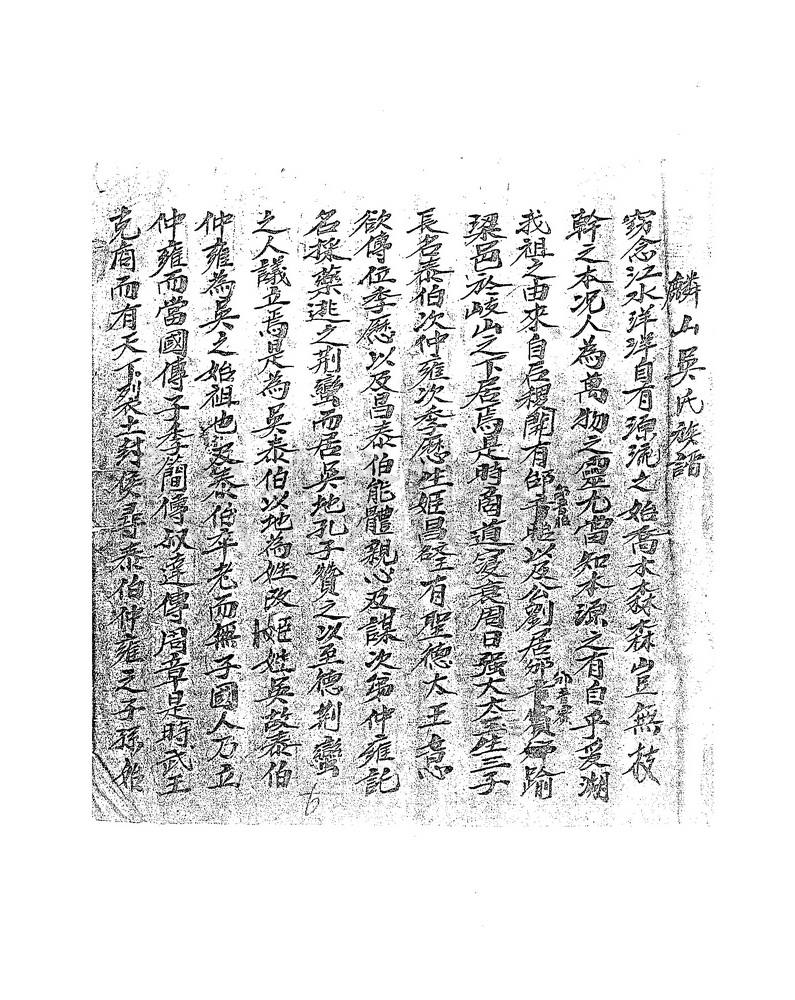 麟山吳氏族譜
窃念江水洋洋自有源流之始喬木森森豈無枝
幹之本况人為萬物之靈尤當知水源之有自乎爰溯
我祖之由來自后稷開有邰以及公劉居邠踰
梁邑於岐山之下居焉是時商道寖衰周日强大太王生三子
長名泰伯次仲雍次季歷生姬昌發王有聖德太王意
欲傳位季歷以及昌泰伯能體親心及謀次弟仲雍託
名採藥逃之荆蠻而居吳地孔子贊之以至德荆蠻
之人議立焉是為吳泰伯以地為姓改姬姓吳故泰伯
仲雍為吳之始祖也及泰伯卒老而無子國人乃立
仲雍而當國傳子季簡傳叔達傳周章是時武王
克商而有天下裂土封侯尋泰伯仲雍之子孫始
6